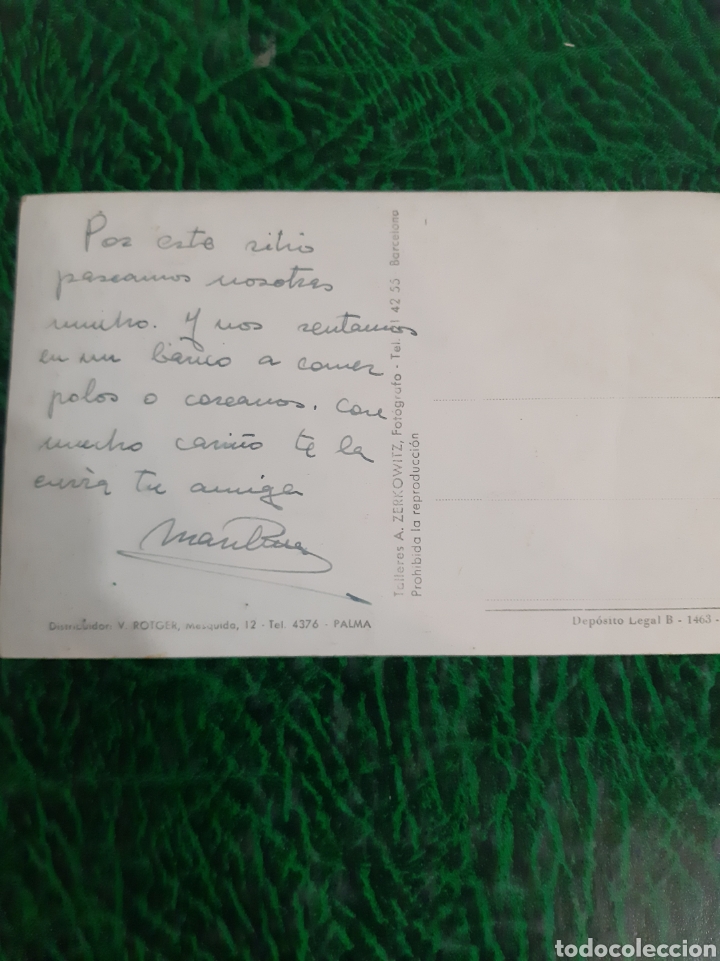 Por este sitio
paseamos nosotras
mucho. Y nos sentamos
en un banco a comer
polos o coreanos. Con
mucho cariño te la
envía tu amiga
Talleres A. ZERKOWITZ, Fotógrafo - Tel. 21 42 55 Barcelona
Prohibida la reproducción
Distribuidor: V. ROTGER, Mesquida, 12 - Tel. 4376 - PALMA
Depósito Legal B - 1463 -
todocoleccion